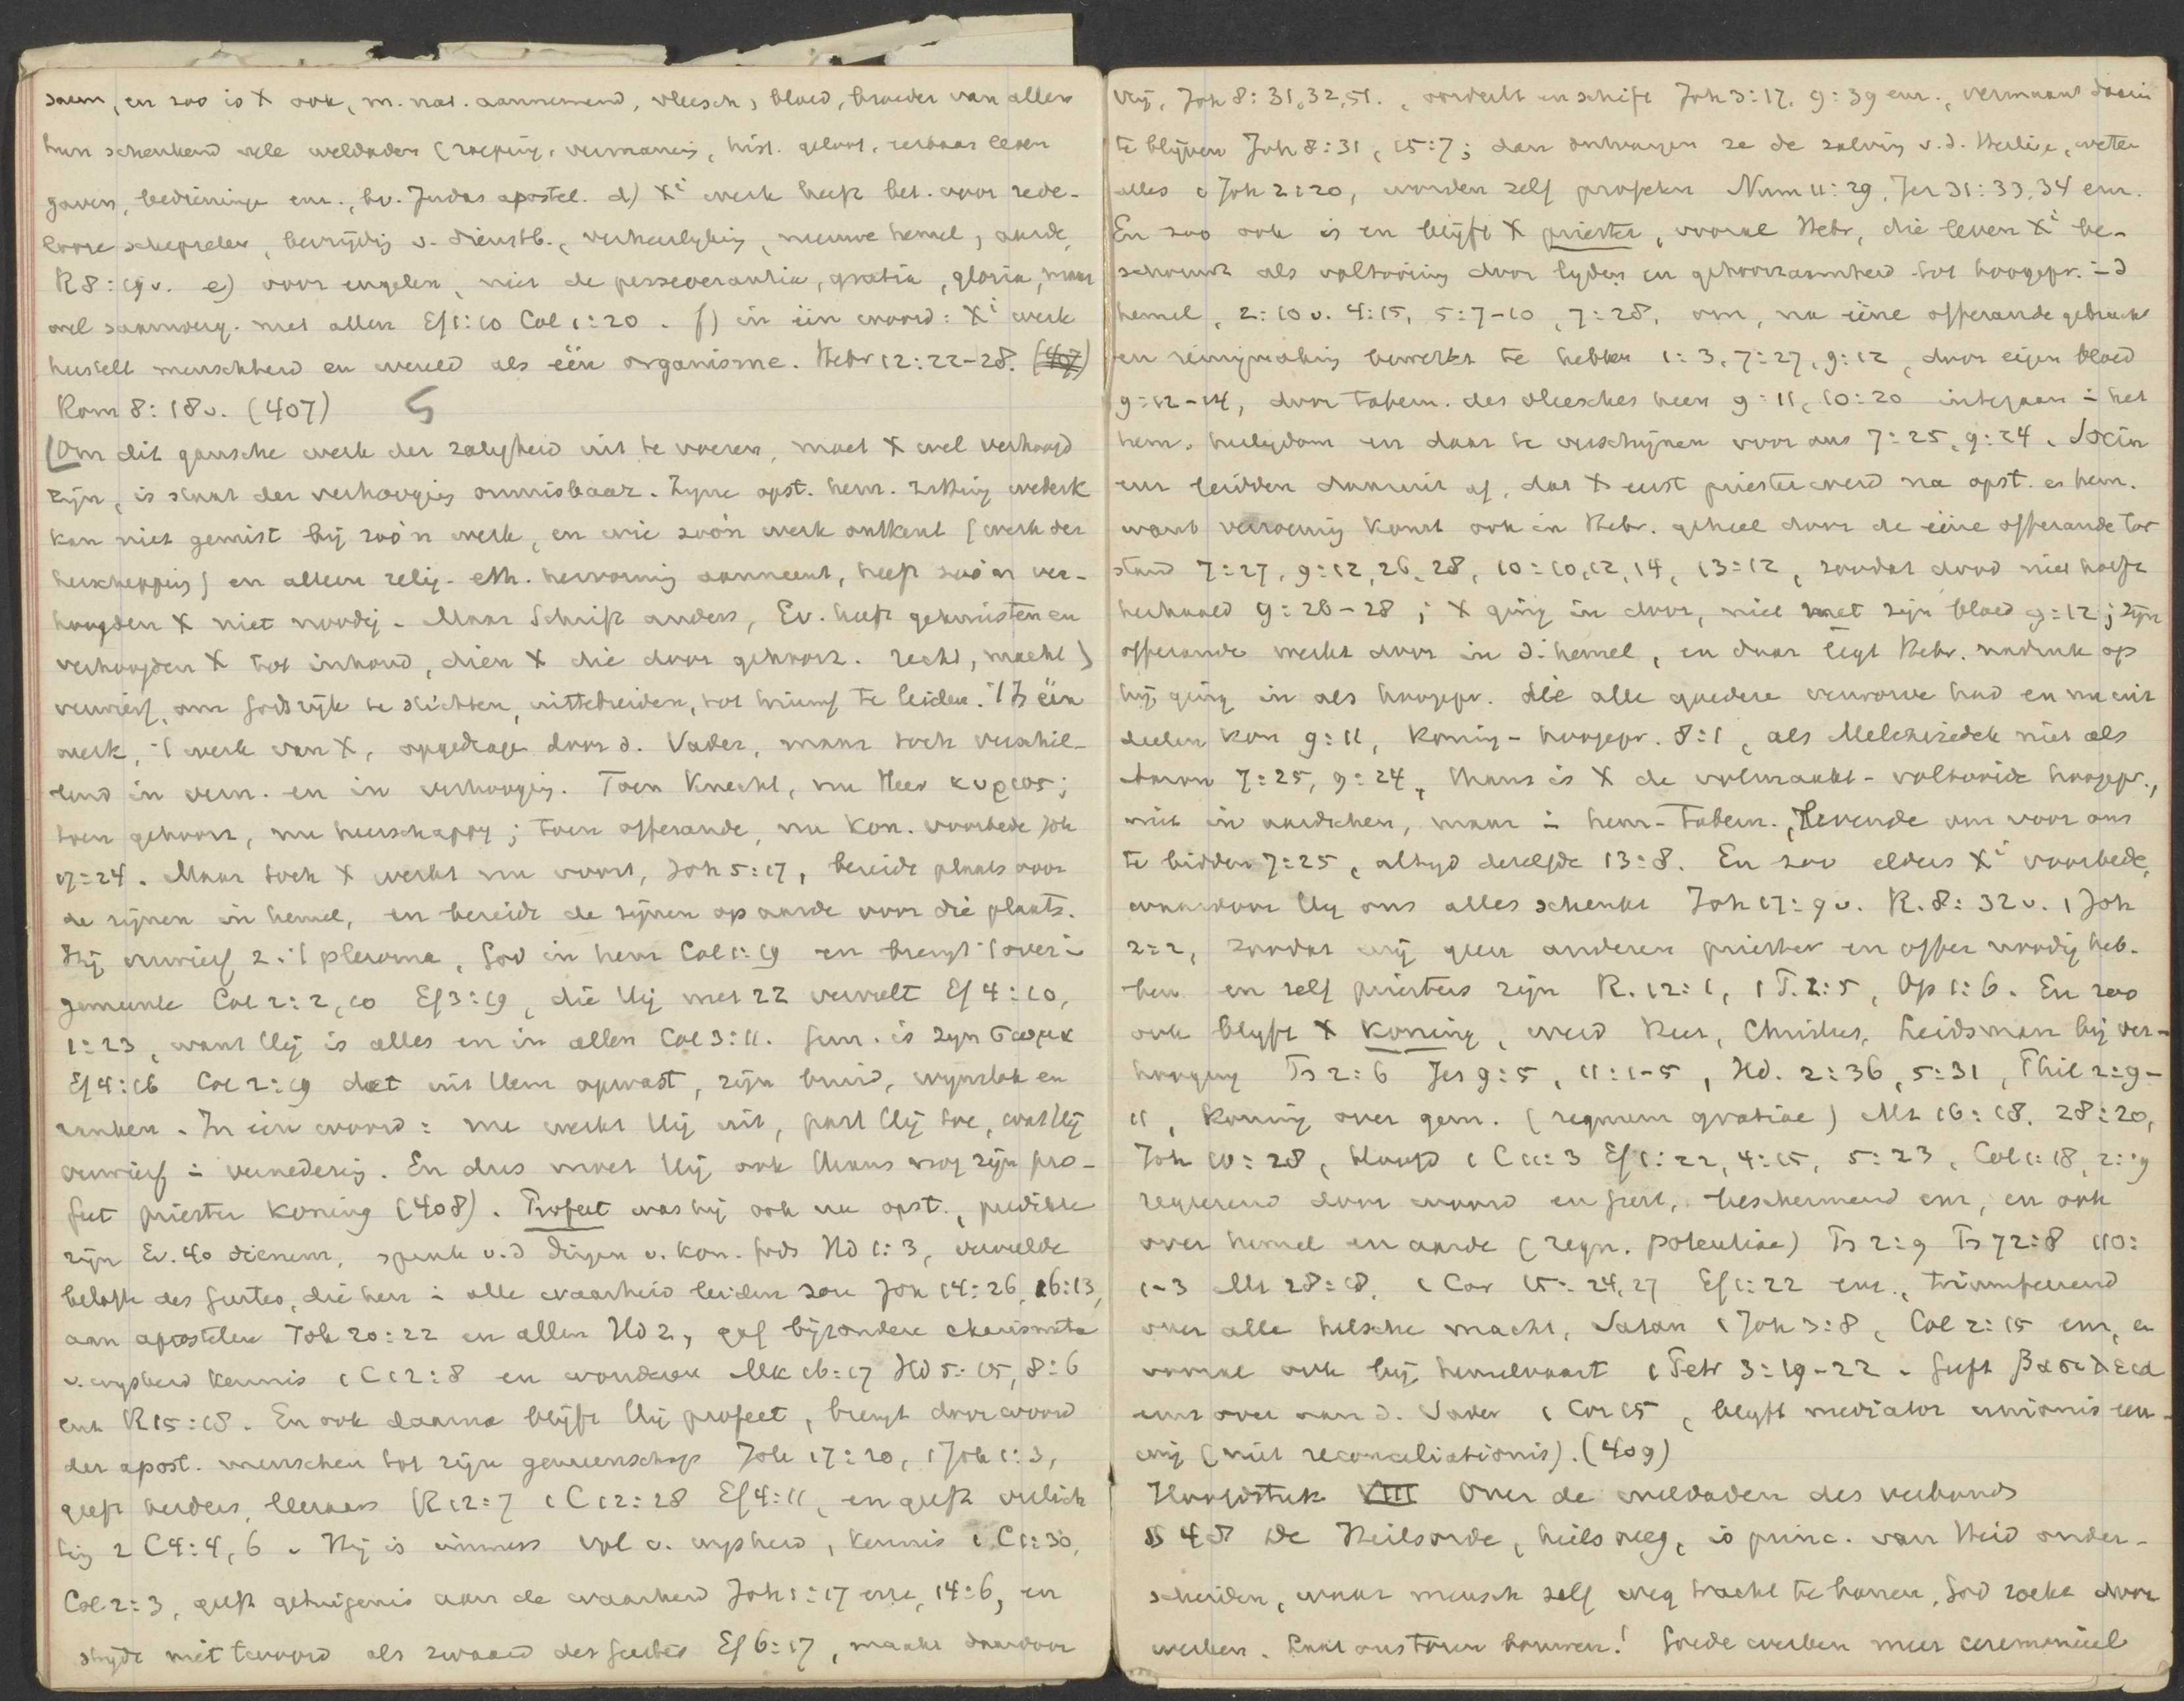 saem, en zoo is X ook, m. nat. aannemend, vleesch, bloed, broeder van allen
hun schenkend vele weldaden (roeping, vermaning, hist. geloof, eerbaar leven
gaven, bedieninge enz., bv. Judas apostel. d) Xi werk heeft bet. voor rede-
looze schepselen, bevrijdig v. dienstb., verheerlyking, nieuwe hemel, aarde,
R8:19v. e) voor engelen, niet de perseverantia, gratia, gloria, maar
wel saamverg. met allen Ef1:10 Col 1:20. f) in één woord: Xi werk
herstelt menschheid en wereld als één organisme. Hebr 12:22-28. (407)
Rom 8:18v. (407) S
(Om dit gansche werk der zaligheid uit te voeren, moet X wel verhoogd
zijn, is staat der verhooging onmisbaar. Zijne opst. hem. zitting wederk
kan niet gemist bij zoo'n werk, en wie zoo'n werk ontkent (werk der
herschepping) en alleen relig-eth. hervorming aanneemt, heeft zoo'n ver-
hoogden X niet noodig. Maar Schrift anders, Ev. heeft gekruisten en
verhoogden X tot inhoud, dien X die door gehoorz. recht, macht
verwierf, om Godsrijk te stichten, uittebreiden, tot triumf te leiden. 't Is één
werk, 't werk van X, opgedrage door d. Vader, maar toch verschil-
lend in vern. en in verhooging. Toen Knecht, nu Heer κυριος;
toen gehoorz, nu heerschappy; toen offerande, nu Kon. voorbede Joh
17:24. Maar toch X werkt nu voort, Joh 5:17, bereidt plaats voor
de zijnen in hemel, en bereidt de zijnen op aarde voor die plaats.
Hij verwierf z. 't pleroma, God in hem Col 1:19 en brengt 't over i
gemeente Col 2:2,10 Ef3:19, die Hij met ZZ vervult Ef 4:10,
1:23, want Hij is alles en in allen Col 3:11. Gem. is zyn σωμα
Ef4:16 Col 2:19 dat uit Hem opwast, zijn bruid, wijnstok en
ranken. In één woord: nu werkt Hij uit, past Hij toe, wat Hij
verwierf i vernedering. En dus moet Hij ook thans nog zijn pro-
feet priester koning (408). Profeet was hij ook na opst., predikte
zijn Ev. 40 dienem, sprak v.d dingen v. kon. Gods Hd 1:3, vervulde
belofte des Geestes, die hen i alle waarheid leiden zou Joh 14:26, 16:13,
aan apostelen Joh 20:22 en allen Hd 2, gaf bijzondere charismata
v. wysheid kennis 1 C12:8 en wonderen Mk 16:17 Hd 5:15, 8:6
enz R15:18. En ook daarna blijft Hij profeet, brengt door woord
der apost. menschen tot zijn gemeenschap Joh 17:20, 1 Joh 1:3,
geeft herders, leeraars R12:7 1 C12:28 Ef4:11, en geeft verlich
ting 2 C4:4,6. Hij is immers vol v. wysheid, kennis 1 C1:30,
Col 2:3, geeft getuigenis aan de waarheid Joh 1:17 enz, 14:6, en
strijdt met twoord als zwaard des Geestes Ef 6:17, maakt daardoor
vrij, Joh 8:31,32,51., oordeelt en schift Joh 3:17, 9:39 enz., vermaant daarin
te blijven Joh 8:31, 15:7; dan ontvangen ze de zalving v.d. Heilige, weten
alles 1 Joh 2:20, worden zelf profeten Num 11:29, Jer 31:33,34 enz.
En zoo ook is en blijft X priester, vooral Hebr, die leven Xi be-
schouwt als voltooiing door lyden en gehoorzaamheid tot hoogepr. i d
hemel, 2:10v. 4:15, 5:7-10, 7:28, om, na ééne offerande gebracht
en reinigmaking bewerkt te hebben 1:3, 7:27, 9:12, door eigen bloed
9:12-14, door tabern. des vleesches heen 9:11, 10:20 integaan i het
hem. heiligdom en daar te verschijnen voor ons 7:25, 9:24. Socin
enz leidden daaruit af, dat X eerst priester werd na opst. en hem.
want verzoening komt ook in Hebr. geheel door de ééne offerande tot
stand 7:27, 9:12,26,28, 10:10,12,14, 13:12, zoodat dood niet hoeft
herhaald 9:26-28; X ging in door, niet met zijn bloed 9:12; zijn
offerande werkt door in d. hemel, en daar legt Hebr. nadruk op
hij ging in als hoogepr. die alle goederen verworve had en nu uit
deelen kon 9:11, Koning-hoogepr. 8:1, als Melchizedek niet als
Aaron 7:25, 9:24, thans is X de volmaakt-voltooide hoogepr.,
niet in aardschen, maar i hem-tabern., levende om voor ons
te bidden 7:25, altyd dezelfde 13:8. En zoo elders Xi voorbede,
waardoor Hij ons alles schenkt Joh 17:9v. R.8:32v. 1 Joh
2:2, zoodat wij geen anderen priester en offer noodig heb-
ben en zelf priesters zijn R.12:1, 1 P.2:5, Op 1:6. En zoo
ook blyft X koning, werd Heer, Christus, Leidsman bij ver-
hooging Ps 2:6 Jes 9:5, 11:1-5, Hd. 2:36, 5:31, Phil 2:9-
11, Koning over gem. (regnum gratiae) Mt 16:18. 28:20,
Joh 10:28, Hoofd 1 C 11:3 Ef 1:22, 4:15, 5:23, Col 1:18, 2:19
regeerend door woord en geest, beschermend enz, en ook
over hemel en aarde (regn. potentiae) Ps 2:9 Ps 72:8 110:
1-3 Mt 28:18, 1 Cor 15:24,27 Ef 1:22 enz., triumfeerend
over alle helsche macht, Satan 1 Joh 3:8, Col 2:15 enz, en
vooral ook bij hemelvaart 1 Petr 3:19-22. Geeft βασιλεια
eens over aan d. Vader 1 Cor 15, blyft mediator unionis eeu-
wig (niet reconciliationis). (409)
Hoofdstuk VIII Over de weldaden des verbonds
§ 48 De Heilsorde, heilsweg, is princ. van Heid onder-
scheiden, waar mensch zelf weg tracht te banen, God zoeke door
werken. Laat ons toren bouwen! Goede werken meer ceremonieel